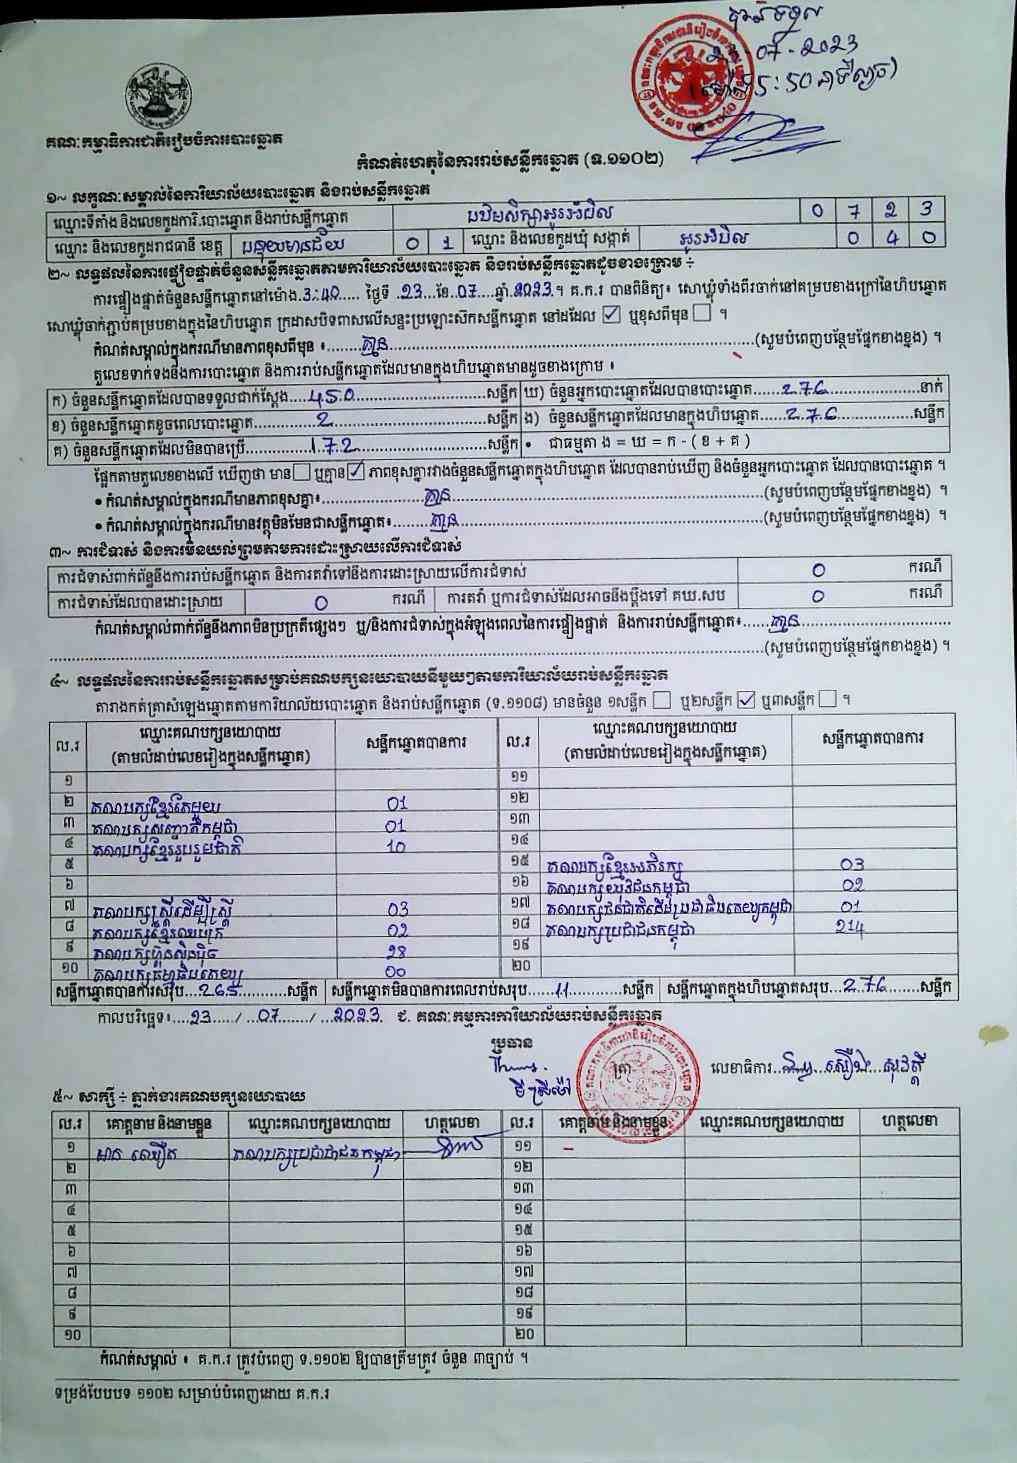 បានទទួល
23-07-2023
5:50 នាទីល្ងាច)
គណៈកម្មាធិការជាតិរៀបចំការបោះឆ្នោត
កំណត់ហេតុនៃការរាប់សន្លឹកឆ្នោត (ទ.១១០២)
១~ លក្ខណៈសម្គាល់នៃការិយាល័យបោះឆ្នោត និងរាប់សន្លឹកឆ្នោត
ឈ្មោះទីតាំង និងលេខកូដការិ.បោះឆ្នោត និងរាប់សន្លឹកឆ្នោត បឋមសិក្សាអូរអំបិល 0 7 2 3
ឈ្មោះ និងលេខកូដរាជធានី ខេត្ត បន្ទាយមានជ័យ 0 1 ឈ្មោះ និងលេខកូដឃុំ សង្កាត់ អូរអំបិល 0 4 0
២~ លទ្ធផលនៃការផ្ទៀងផ្ទាត់ចំនួនសន្លឹកឆ្នោតតាមការិយាល័យបោះឆ្នោត និងរាប់សន្លឹកឆ្នោតដូចខាងក្រោម ÷
ការផ្ទៀងផ្ទាត់ចំនួនសន្លឹកឆ្នោតនៅម៉ោង.3:40..... ថ្ងៃទី .23...ខែ.07....ឆ្នាំ.2023.។ គ.ក.រ បានពិនិត្យ៖ សោឃ្លុំទាំងពីរចាក់នៅគម្របខាងក្រៅនៃហិបឆ្នោត
សោឃ្លុំចាក់ភ្ជាប់គម្របខាងក្នុងនៃហិបឆ្នោត ក្រដាសបិទពាសលើសន្ទះប្រឡោះសិកសន្លឹកឆ្នោត នៅដដែល ☑ ឬខុសពីមុន ☐ ។
កំណត់សម្គាល់ក្នុងករណីមានភាពខុសពីមុន ៖......គ្មាន......(សូមបំពេញបន្ថែមផ្នែកខាងខ្នង) ។
តួលេខទាក់ទងនឹងការបោះឆ្នោត និងការរាប់សន្លឹកឆ្នោតដែលមានក្នុងហិបឆ្នោតមានដូចខាងក្រោម ៖
ក) ចំនួនសន្លឹកឆ្នោតដែលបានទទួលជាក់ស្តែង....450......សន្លឹក ឃ) ចំនួនអ្នកបោះឆ្នោតដែលបានបោះឆ្នោត......276......នាក់
ខ) ចំនួនសន្លឹកឆ្នោតខូចពេលបោះឆ្នោត......2......សន្លឹក ង) ចំនួនសន្លឹកឆ្នោតដែលមានក្នុងហិបឆ្នោត......276......សន្លឹក
គ) ចំនួនសន្លឹកឆ្នោតដែលមិនបានប្រើ......172......សន្លឹក • ជាធម្មតា ង = ឃ = ក - ( ខ + គ )
ផ្អែកតាមតួលេខខាងលើ ឃើញថា មាន ☐ ឬគ្មាន ☑ ភាពខុសគ្នារវាងចំនួនសន្លឹកឆ្នោតក្នុងហិបឆ្នោត ដែលបានរាប់ឃើញ និងចំនួនអ្នកបោះឆ្នោត ដែលបានបោះឆ្នោត ។
• កំណត់សម្គាល់ក្នុងករណីមានភាពខុសគ្នា៖......គ្មាន......(សូមបំពេញបន្ថែមផ្នែកខាងខ្នង) ។
• កំណត់សម្គាល់ក្នុងករណីមានវត្ថុមិនមែនជាសន្លឹកឆ្នោត៖......គ្មាន......(សូមបំពេញបន្ថែមផ្នែកខាងខ្នង) ។
៣~ ការជំទាស់ និងការមិនយល់ព្រមតាមការដោះស្រាយលើការជំទាស់
ការជំទាស់ពាក់ព័ន្ធនឹងការរាប់សន្លឹកឆ្នោត និងការតវ៉ាទៅនឹងការដោះស្រាយលើការជំទាស់ 0 ករណី
ការជំទាស់ដែលបានដោះស្រាយ 0 ករណី ការតវ៉ា ឬការជំទាស់ដែលអាចនឹងប្តឹងទៅ គឃ.សប 0 ករណី
កំណត់សម្គាល់ពាក់ព័ន្ធនឹងភាពមិនប្រក្រតីផ្សេងៗ ឬ/និងការជំទាស់ក្នុងអំឡុងពេលនៃការផ្ទៀងផ្ទាត់ និងការរាប់សន្លឹកឆ្នោត៖......គ្មាន......
......(សូមបំពេញបន្ថែមផ្នែកខាងខ្នង) ។
៤~ លទ្ធផលនៃការរាប់សន្លឹកឆ្នោតសម្រាប់គណបក្សនយោបាយនីមួយៗតាមការិយាល័យរាប់សន្លឹកឆ្នោត
តារាងកត់ត្រាសំឡេងឆ្នោតតាមការិយាល័យបោះឆ្នោត និងរាប់សន្លឹកឆ្នោត (ទ.១១០៨) មានចំនួន ១សន្លឹក ☐ ឬ២សន្លឹក ☑ ឬ៣សន្លឹក ☐ ។
ល.រ ឈ្មោះគណបក្សនយោបាយ (តាមលំដាប់លេខរៀងក្នុងសន្លឹកឆ្នោត) សន្លឹកឆ្នោតបានការ ល.រ ឈ្មោះគណបក្សនយោបាយ (តាមលំដាប់លេខរៀងក្នុងសន្លឹកឆ្នោត) សន្លឹកឆ្នោតបានការ
១ ១១
២ គណបក្សខ្មែរតែមួយ 01 ១២
៣ គណបក្សសញ្ជាតិកម្ពុជា 01 ១៣
៤ គណបក្សខ្មែររួបរួមជាតិ 10 ១៤
៥ ១៥ គណបក្សខ្មែរអភិរក្ស 03
៦ ១៦ គណបក្សយុវជនកម្ពុជា 02
៧ គណបក្សស្ត្រីដើម្បីស្ត្រី 03 ១៧ គណបក្សជនជាតិដើមប្រជាធិបតេយ្យកម្ពុជា 01
៨ គណបក្សខ្មែរឈប់ក្រ 02 ១៨ គណបក្សប្រជាជនកម្ពុជា 214
៩ គណបក្សហ៊្វុនស៊ិនប៉ិច 28 ១៩
១០ គណបក្សធម្មាធិបតេយ្យ 00 ២០
សន្លឹកឆ្នោតបានការសរុប...265......សន្លឹក សន្លឹកឆ្នោតមិនបានការពេលរាប់សរុប......11......សន្លឹក សន្លឹកឆ្នោតក្នុងហិបឆ្នោតសរុប...276......សន្លឹក
កាលបរិច្ឆេទ៖....23...../...07......./...2023. ជ. គណៈកម្មការការិយាល័យរាប់សន្លឹកឆ្នោត
ប្រធាន
ត្រា
លេខាធិការ
៥~ សាក្សី ÷ ភ្នាក់ងារគណបក្សនយោបាយ
ល.រ គោត្តនាម និងនាមខ្លួន ឈ្មោះគណបក្សនយោបាយ ហត្ថលេខា ល.រ គោត្តនាម និងនាមខ្លួន ឈ្មោះគណបក្សនយោបាយ ហត្ថលេខា
១ គណបក្សប្រជាជនកម្ពុជា ១១ –
២ ១២
៣ ១៣
៤ ១៤
៥ ១៥
៦ ១៦
៧ ១៧
៨ ១៨
៩ ១៩
១០ ២០
កំណត់សម្គាល់ ៖ គ.ក.រ ត្រូវបំពេញ ទ.១១០២ ឱ្យបានត្រឹមត្រូវ ចំនួន ៣ច្បាប់ ។
ទម្រង់បែបបទ ១១០២ សម្រាប់បំពេញដោយ គ.ក.រ